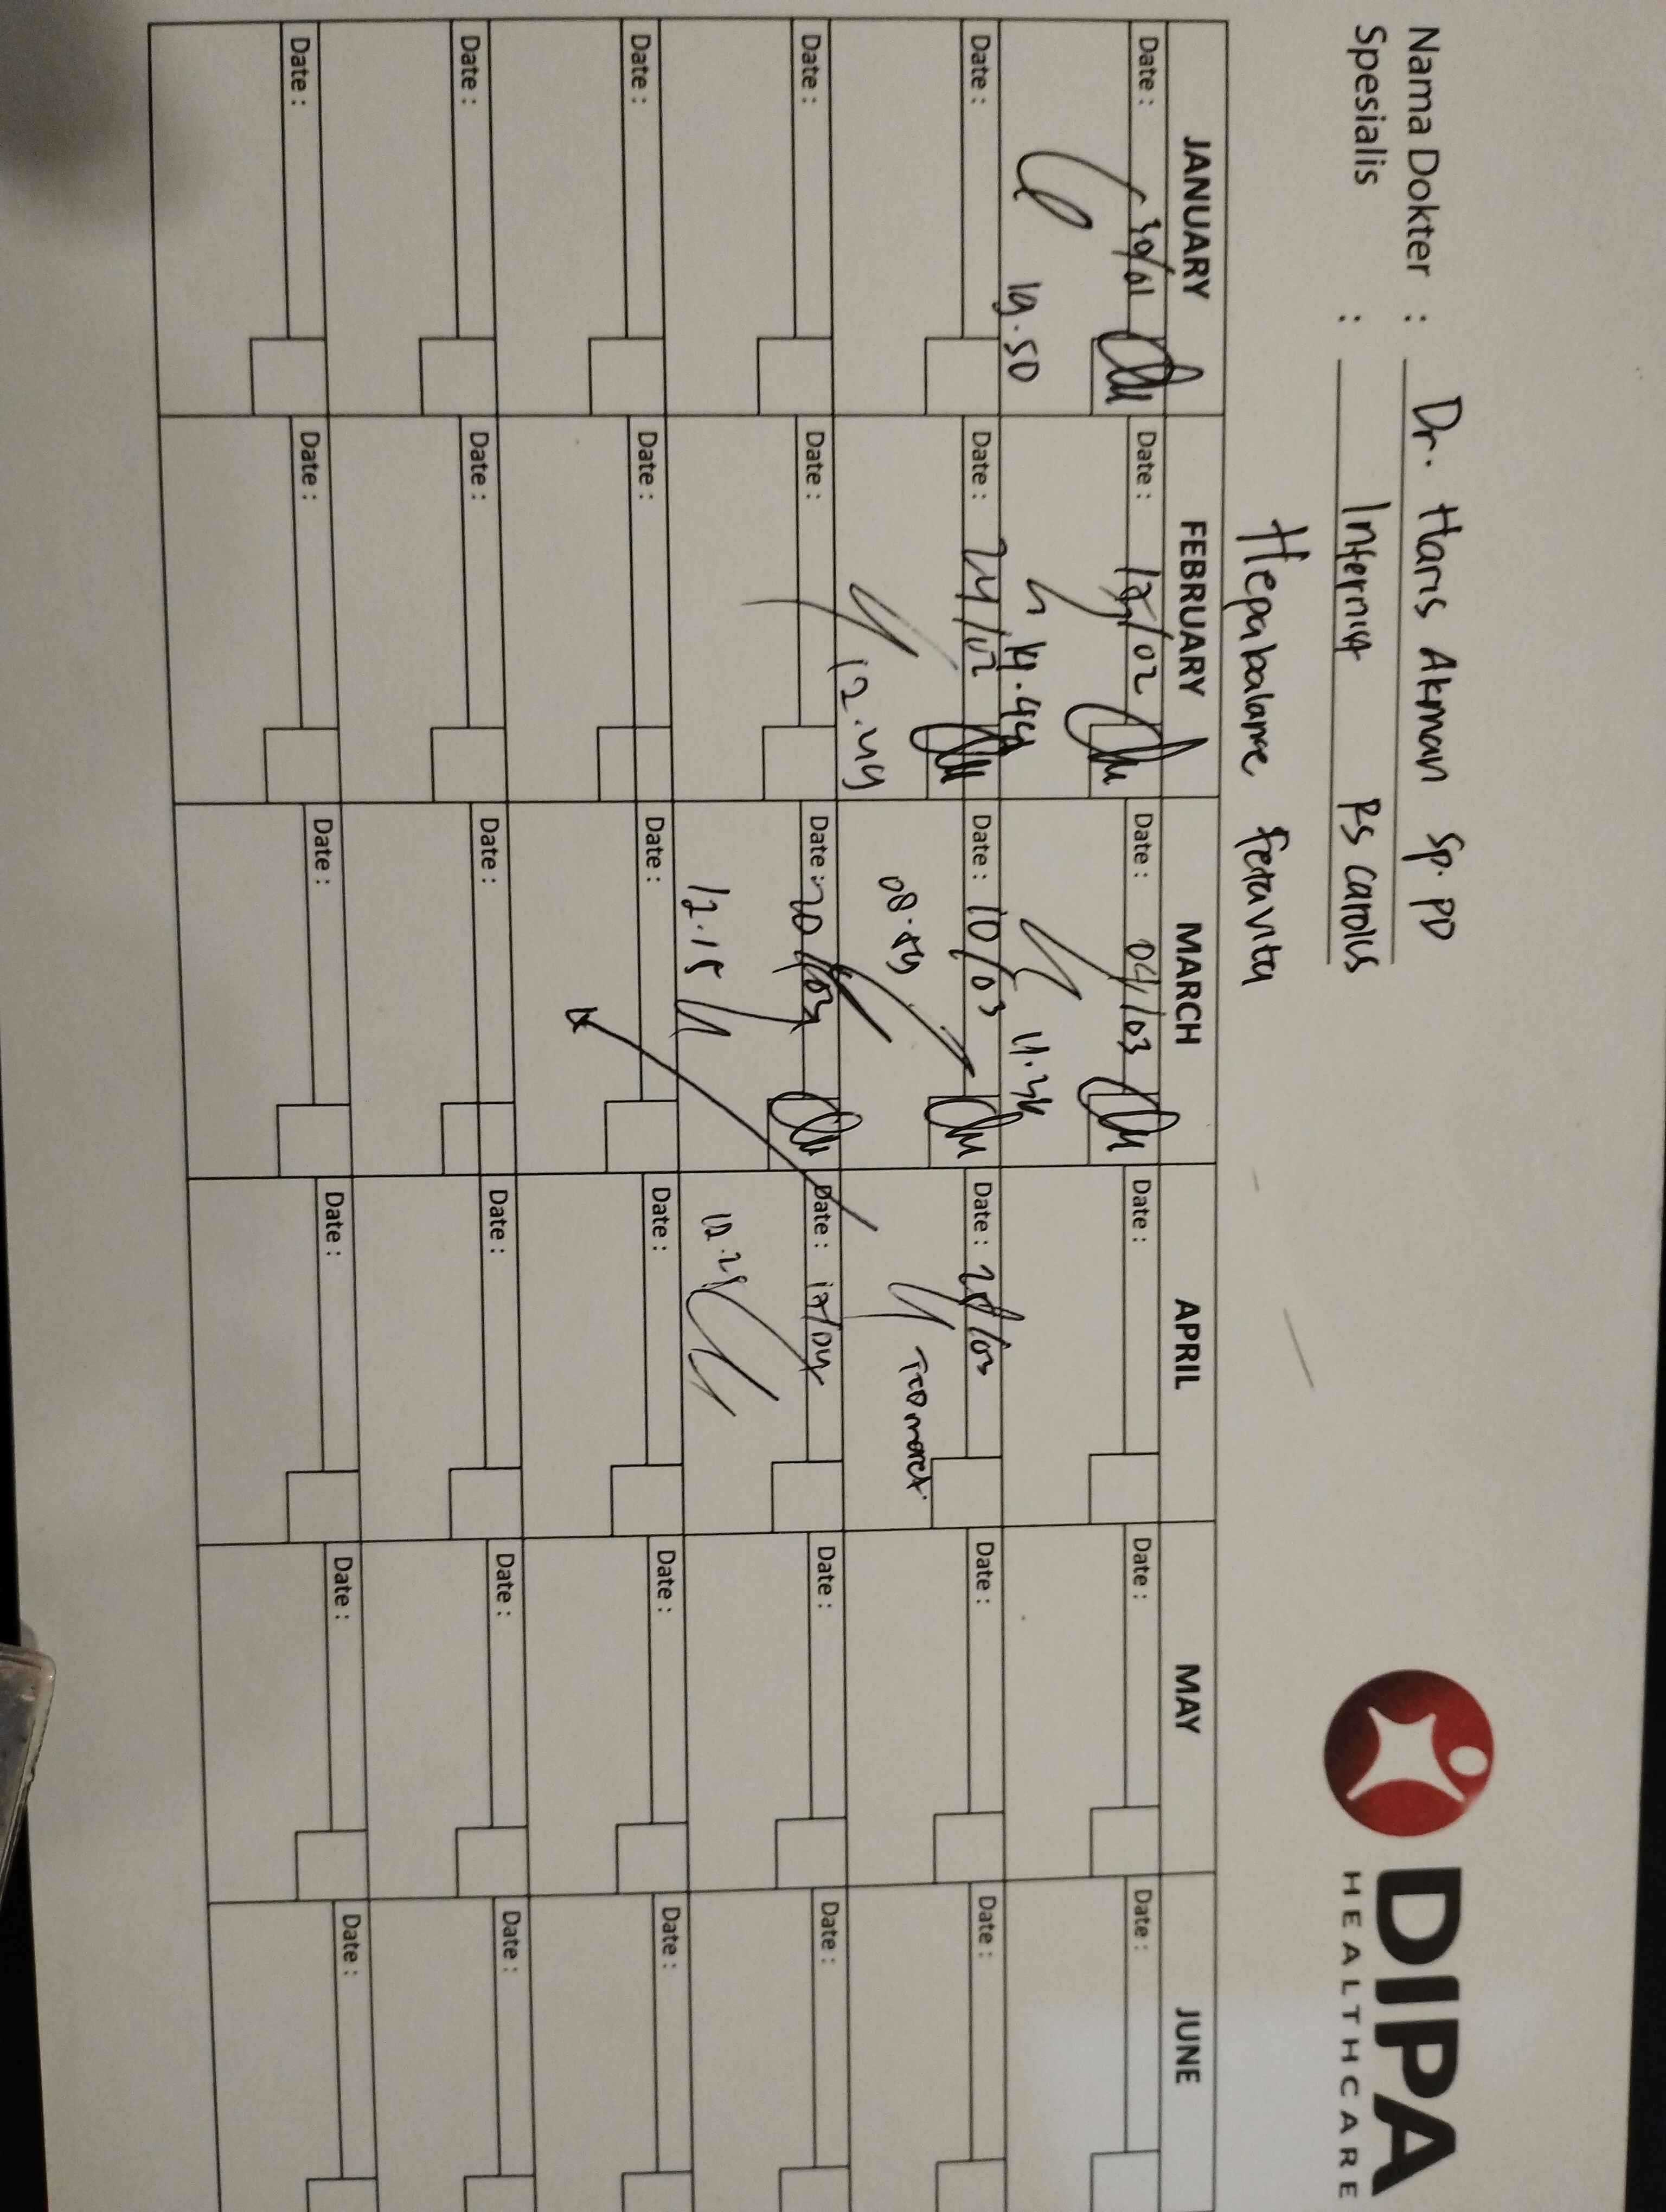 Nama Dokter : Dr. Haris Akman Sp. PD
Spesialis : Internist RS Carolus
DIPA
HEALTHCARE
Hepabalance Feravita
JANUARY FEBRUARY MARCH APRIL MAY JUNE
Date : 30/01 Date : /02 Date : 04/03 Date : Date : Date :
19.50 14.44 11.34
Date : Date : 24/02 Date : 10/03 Date : 28/03 Date : Date :
12.49 08.49 TTD maret
Date : Date : Date : 20/03 Date : 17/04 Date : Date :
12.15 12.28
Date : Date : Date : Date : Date : Date :
Date : Date : Date : Date : Date : Date :
Date : Date : Date : Date : Date : Date :